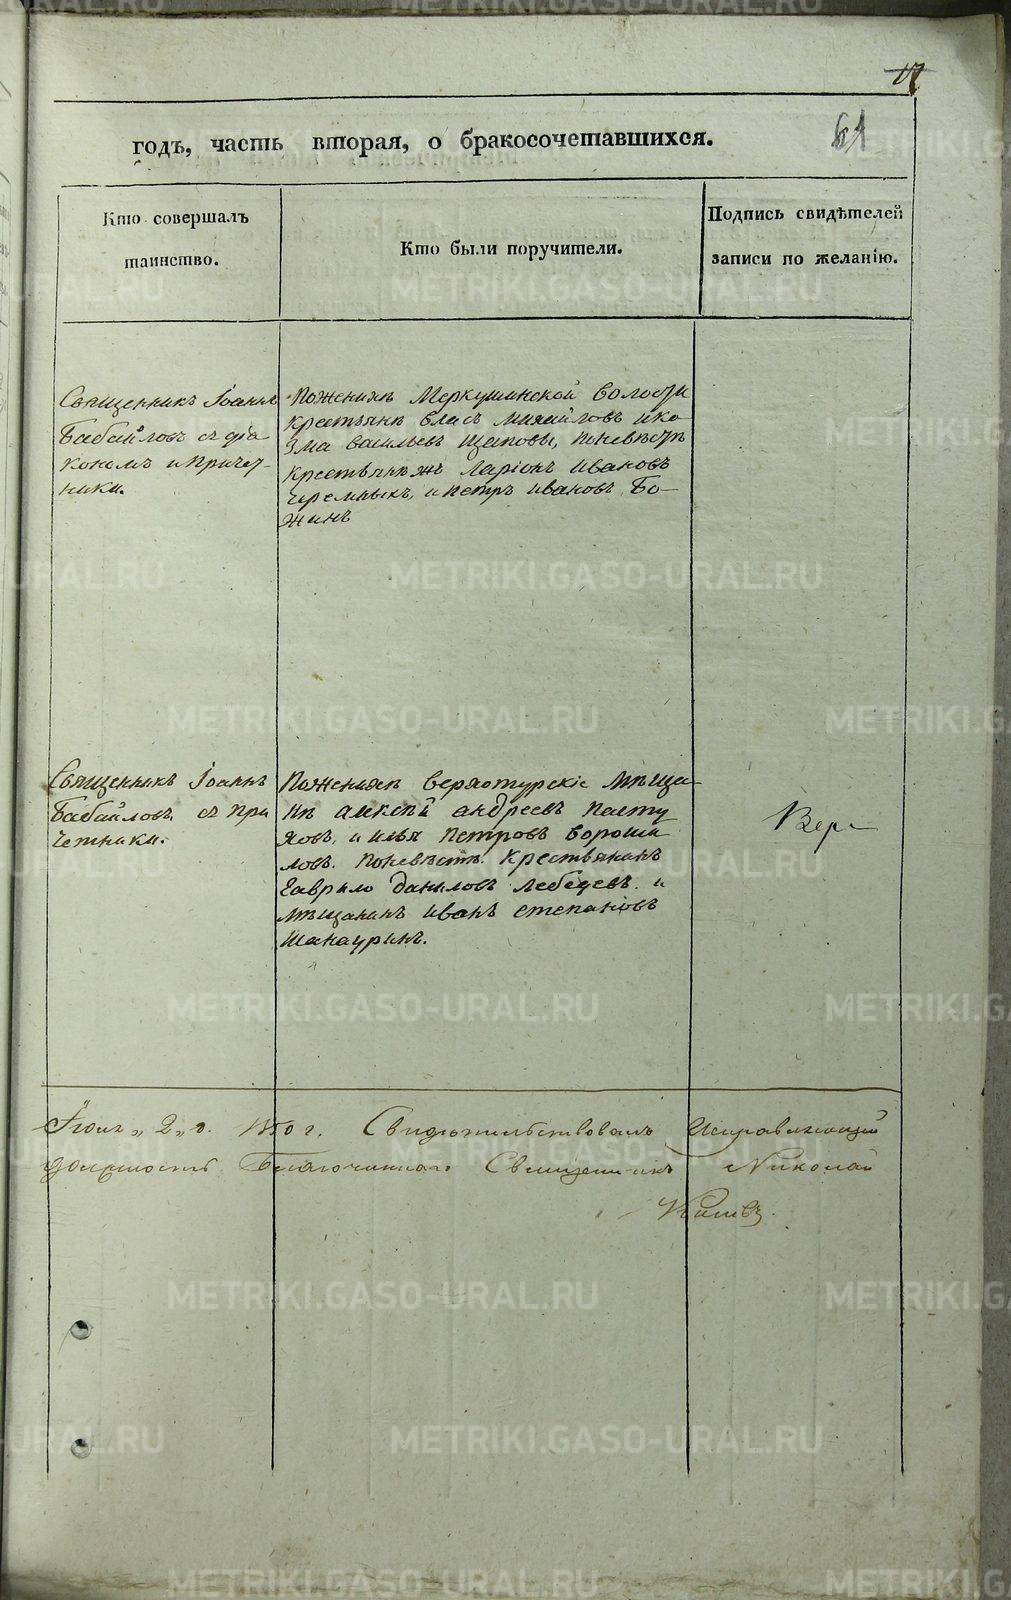 17
61
годъ, часть вторая, о бракосочетавшихся.
Кто совершалъ
таинство.
Кто были поручители.
Подпись свидѣтелей
записи по желанію.
Священникъ Іоаннъ
Бабайловъ съ діа
кономъ и причет-
ники.
По женихѣ Меркушинской волости
крестьяне Власъ Михайловъ и Ко
зма Васильевъ Щаповы, по невѣстѣ
крестьяне жъ Ларіонъ Ивановъ
Черемныхъ, и Петръ Ивановъ Бо-
жинъ
Священникъ Іоаннъ
Бабайловъ съ при
четники.
По женихѣ Верхотурскіе мѣща-
не Алексѣй Андреевъ Пасту
ховъ, и Илья Петровъ Вороши
ловъ. По невѣстѣ крестьянинъ
Гаврило Даниловъ Лебедевъ и
мѣщанинъ Иванъ Степановъ
Шанауринъ.
Вер
Іюля 2 г. Свидѣтельствовалъ Исправляющій
должность Благочиннаго Священникъ Николай
METRIKI.GASO-URAL.RU